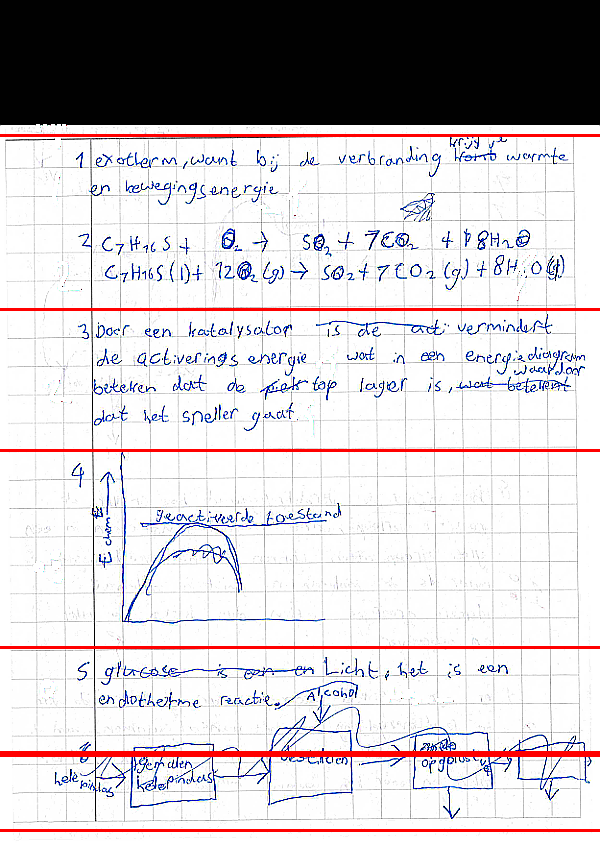 1 exotherm, want bij de verbranding krijg je warmte
en bewegingsenergie
2 C7H16S + O2 → SO2 + 7CO2 + 8H2O
C7H16S (l) + 12O2 (g) → SO2 + 7CO2 (g) + 8H2O (g)
3 Door een katalysator is de acti vermindert
de activerings energie wat in een energiediagram
beteken dat de piek top lager is, wat betekent waardoor
dat het sneller gaat.
4
E chem
geactiveerde toestand
5 glucose is een en Licht, het is een
endotherme reactie.
Alcohol
hele pindas
gemalen
hele pindas
opgelost